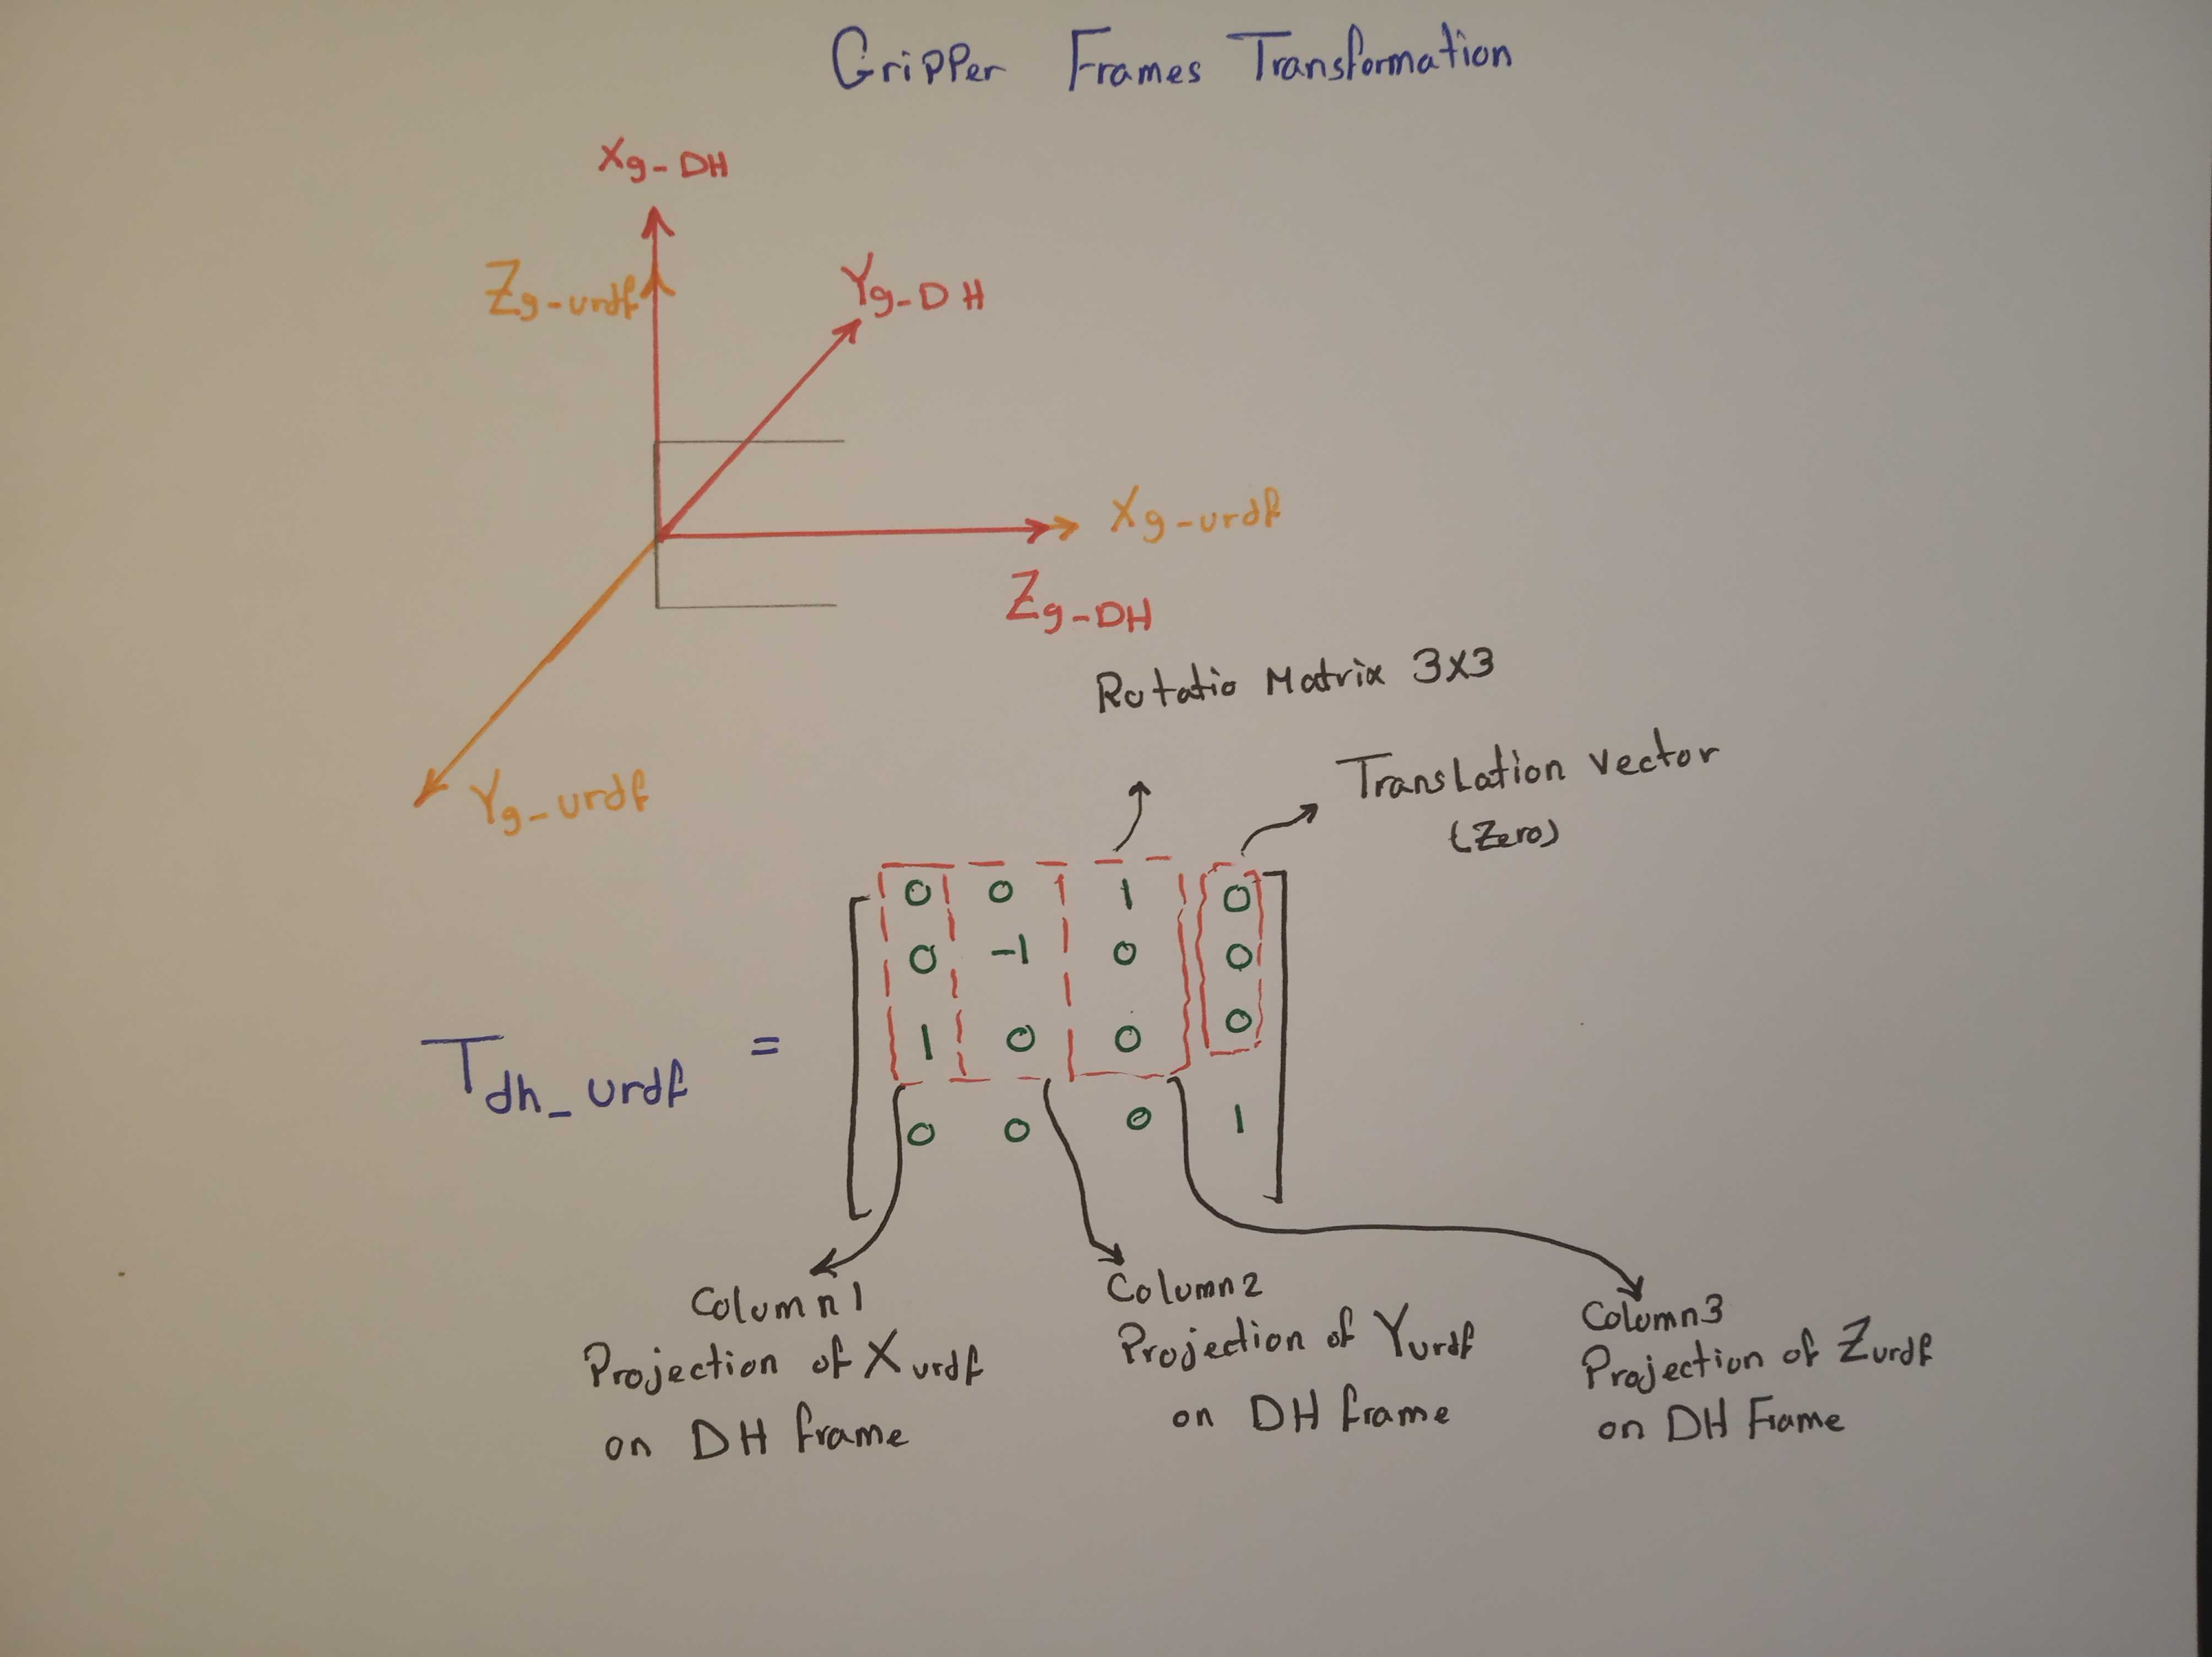 Gripper Frames Transformation
Xg-DH
Zg-urdf
Yg-DH
Xg-urdf
Zg-DH
Yg-urdf
Rotatio Matrix 3x3
Translation vector
(Zero)
0 0 1 0
0 -1 0 0
1 0 0 0
0 0 0 1
Tdh_urdf =
Column1
Projection of Xurdf
on DH frame
Column2
Projection of Yurdf
on DH frame
Column3
Projection of Zurdf
on DH Frame